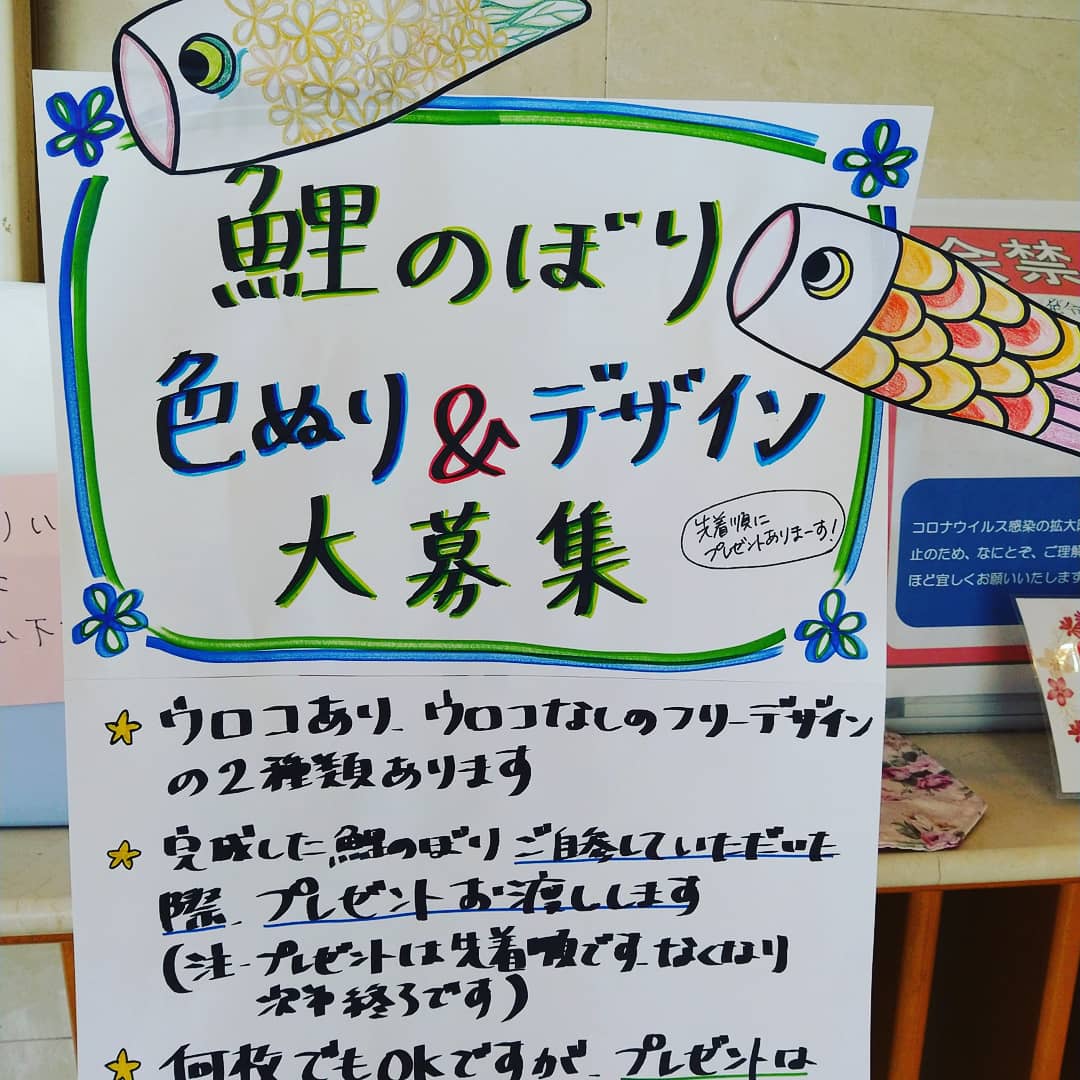 鯉のぼり
色ぬり&デザイン
大募集
先着順に
プレゼントありまーす!
ウロコあり、ウロコなしのフリーデザイン
の2種類あります
完成した鯉のぼりご自参していただいた
際、プレゼントお渡しします
(注-プレゼントは先着順です。なくなり
次第終了です)
何枚でもOKですが、プレゼントは
コロナウイルス感染の拡大
止のため、なにとぞ、ご理解
ほど宜しくお願いいたします
禁
りい